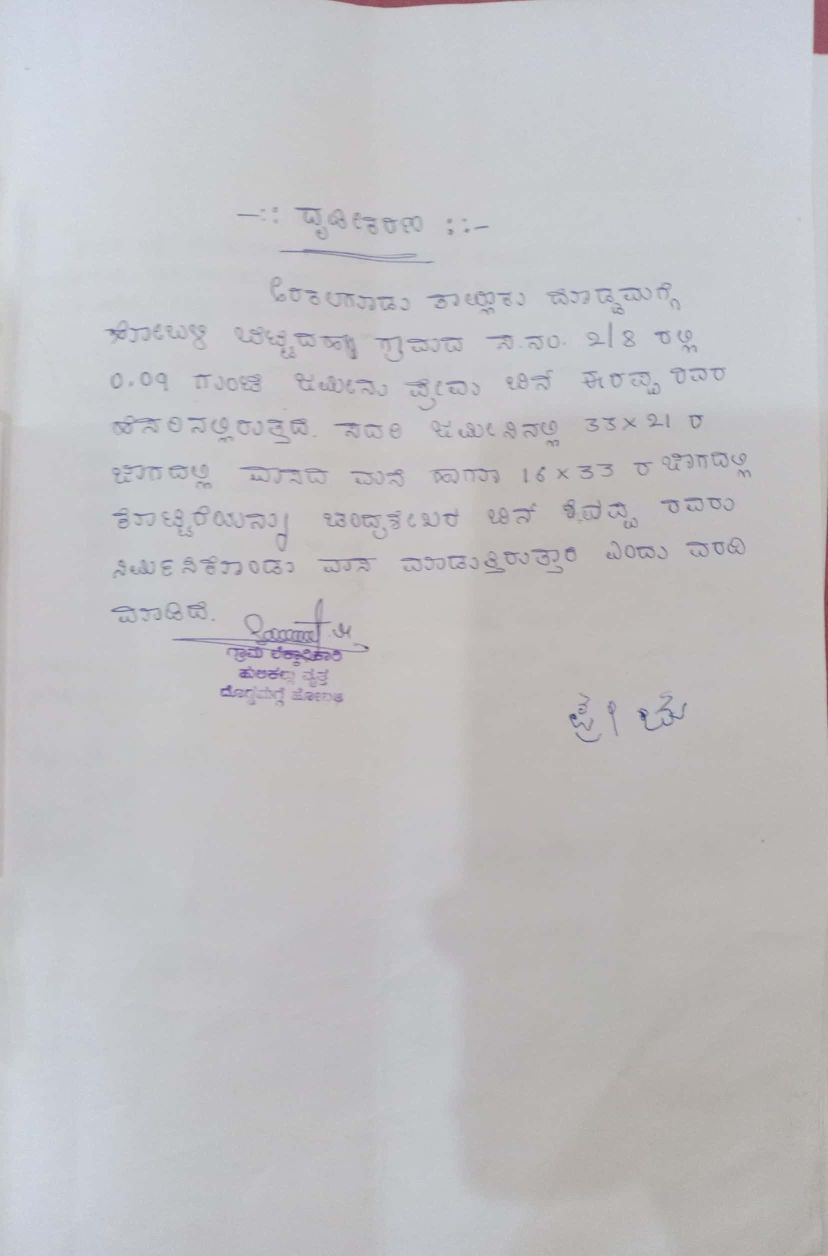 -:: ದೃಢೀಕರಣ ::-
ಅರಕಲಗೂಡು ತಾಲ್ಲೂಕು ದೊಡ್ಡಮಗ್ಗೆ
ಹೋಬಳಿ ಗ್ರಾಮದ ಸ.ನಂ. 2/8 ರಲ್ಲಿ
0.09 ಗುಂಟೆ ಜಮೀನು ಪ್ರೇಮ ಬಿನ್ ಈರಪ್ಪ ರವರ
ಹೆಸರಿನಲ್ಲಿರುತ್ತದೆ. ಸದರಿ ಜಮೀನಿನಲ್ಲಿ 33×21 ರ
ಭಾಗದಲ್ಲಿ ವಾಸದ ಮನೆ ಹಾಗೂ 16×33 ರ ಭಾಗದಲ್ಲಿ
ಕೊಟ್ಟಿಗೆಯನ್ನು ಚಂದ್ರಶೇಖರ ಬಿನ್ ಶಿವಪ್ಪ ರವರು
ನಿರ್ಮಿಸಿಕೊಂಡು ವಾಸ ಮಾಡುತ್ತಿರುತ್ತಾರೆ ಎಂದು ವರದಿ
ಮಾಡಿದೆ.
ಗ್ರಾಮ ಲೆಕ್ಕಾಧಿಕಾರಿ
ವೃತ್ತ
ದೊಡ್ಡಮಗ್ಗೆ ಹೋಬಳಿ